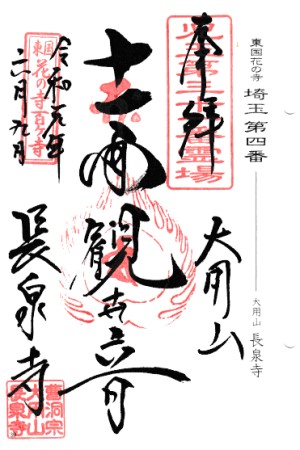 東国花の寺 埼玉第四番
大用山 長泉寺
奉拝
大用山
十一面観世音
東国
花の寺百ヶ寺
令和元年
六月九日
長泉寺
曹洞宗
大用山
長泉寺